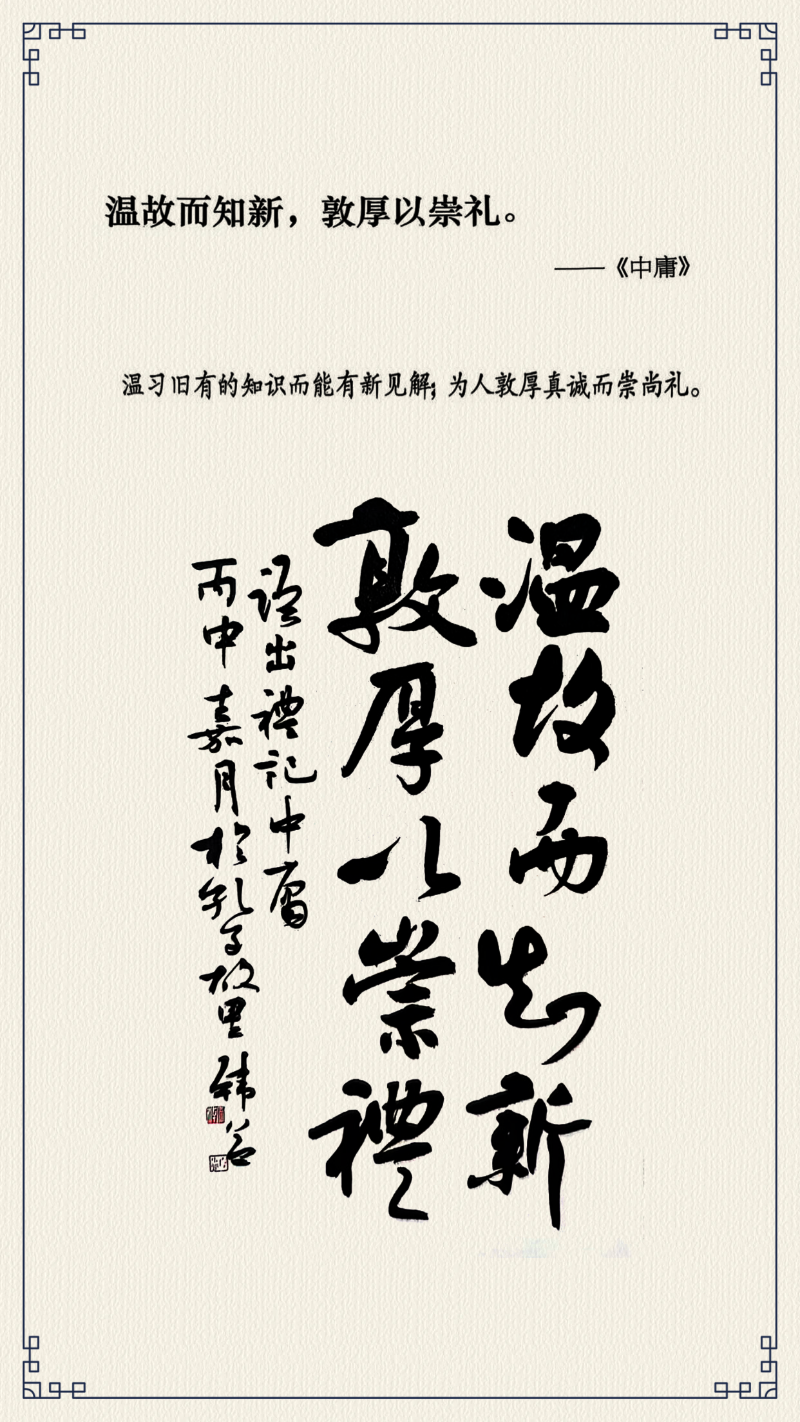 温故而知新，敦厚以崇礼。
——《中庸》
温习旧有的知识而能有新见解；为人敦厚真诚而崇尚礼。
温故而知新
敦厚以崇禮
语出禮记中庸
丙申嘉月於孔子故里